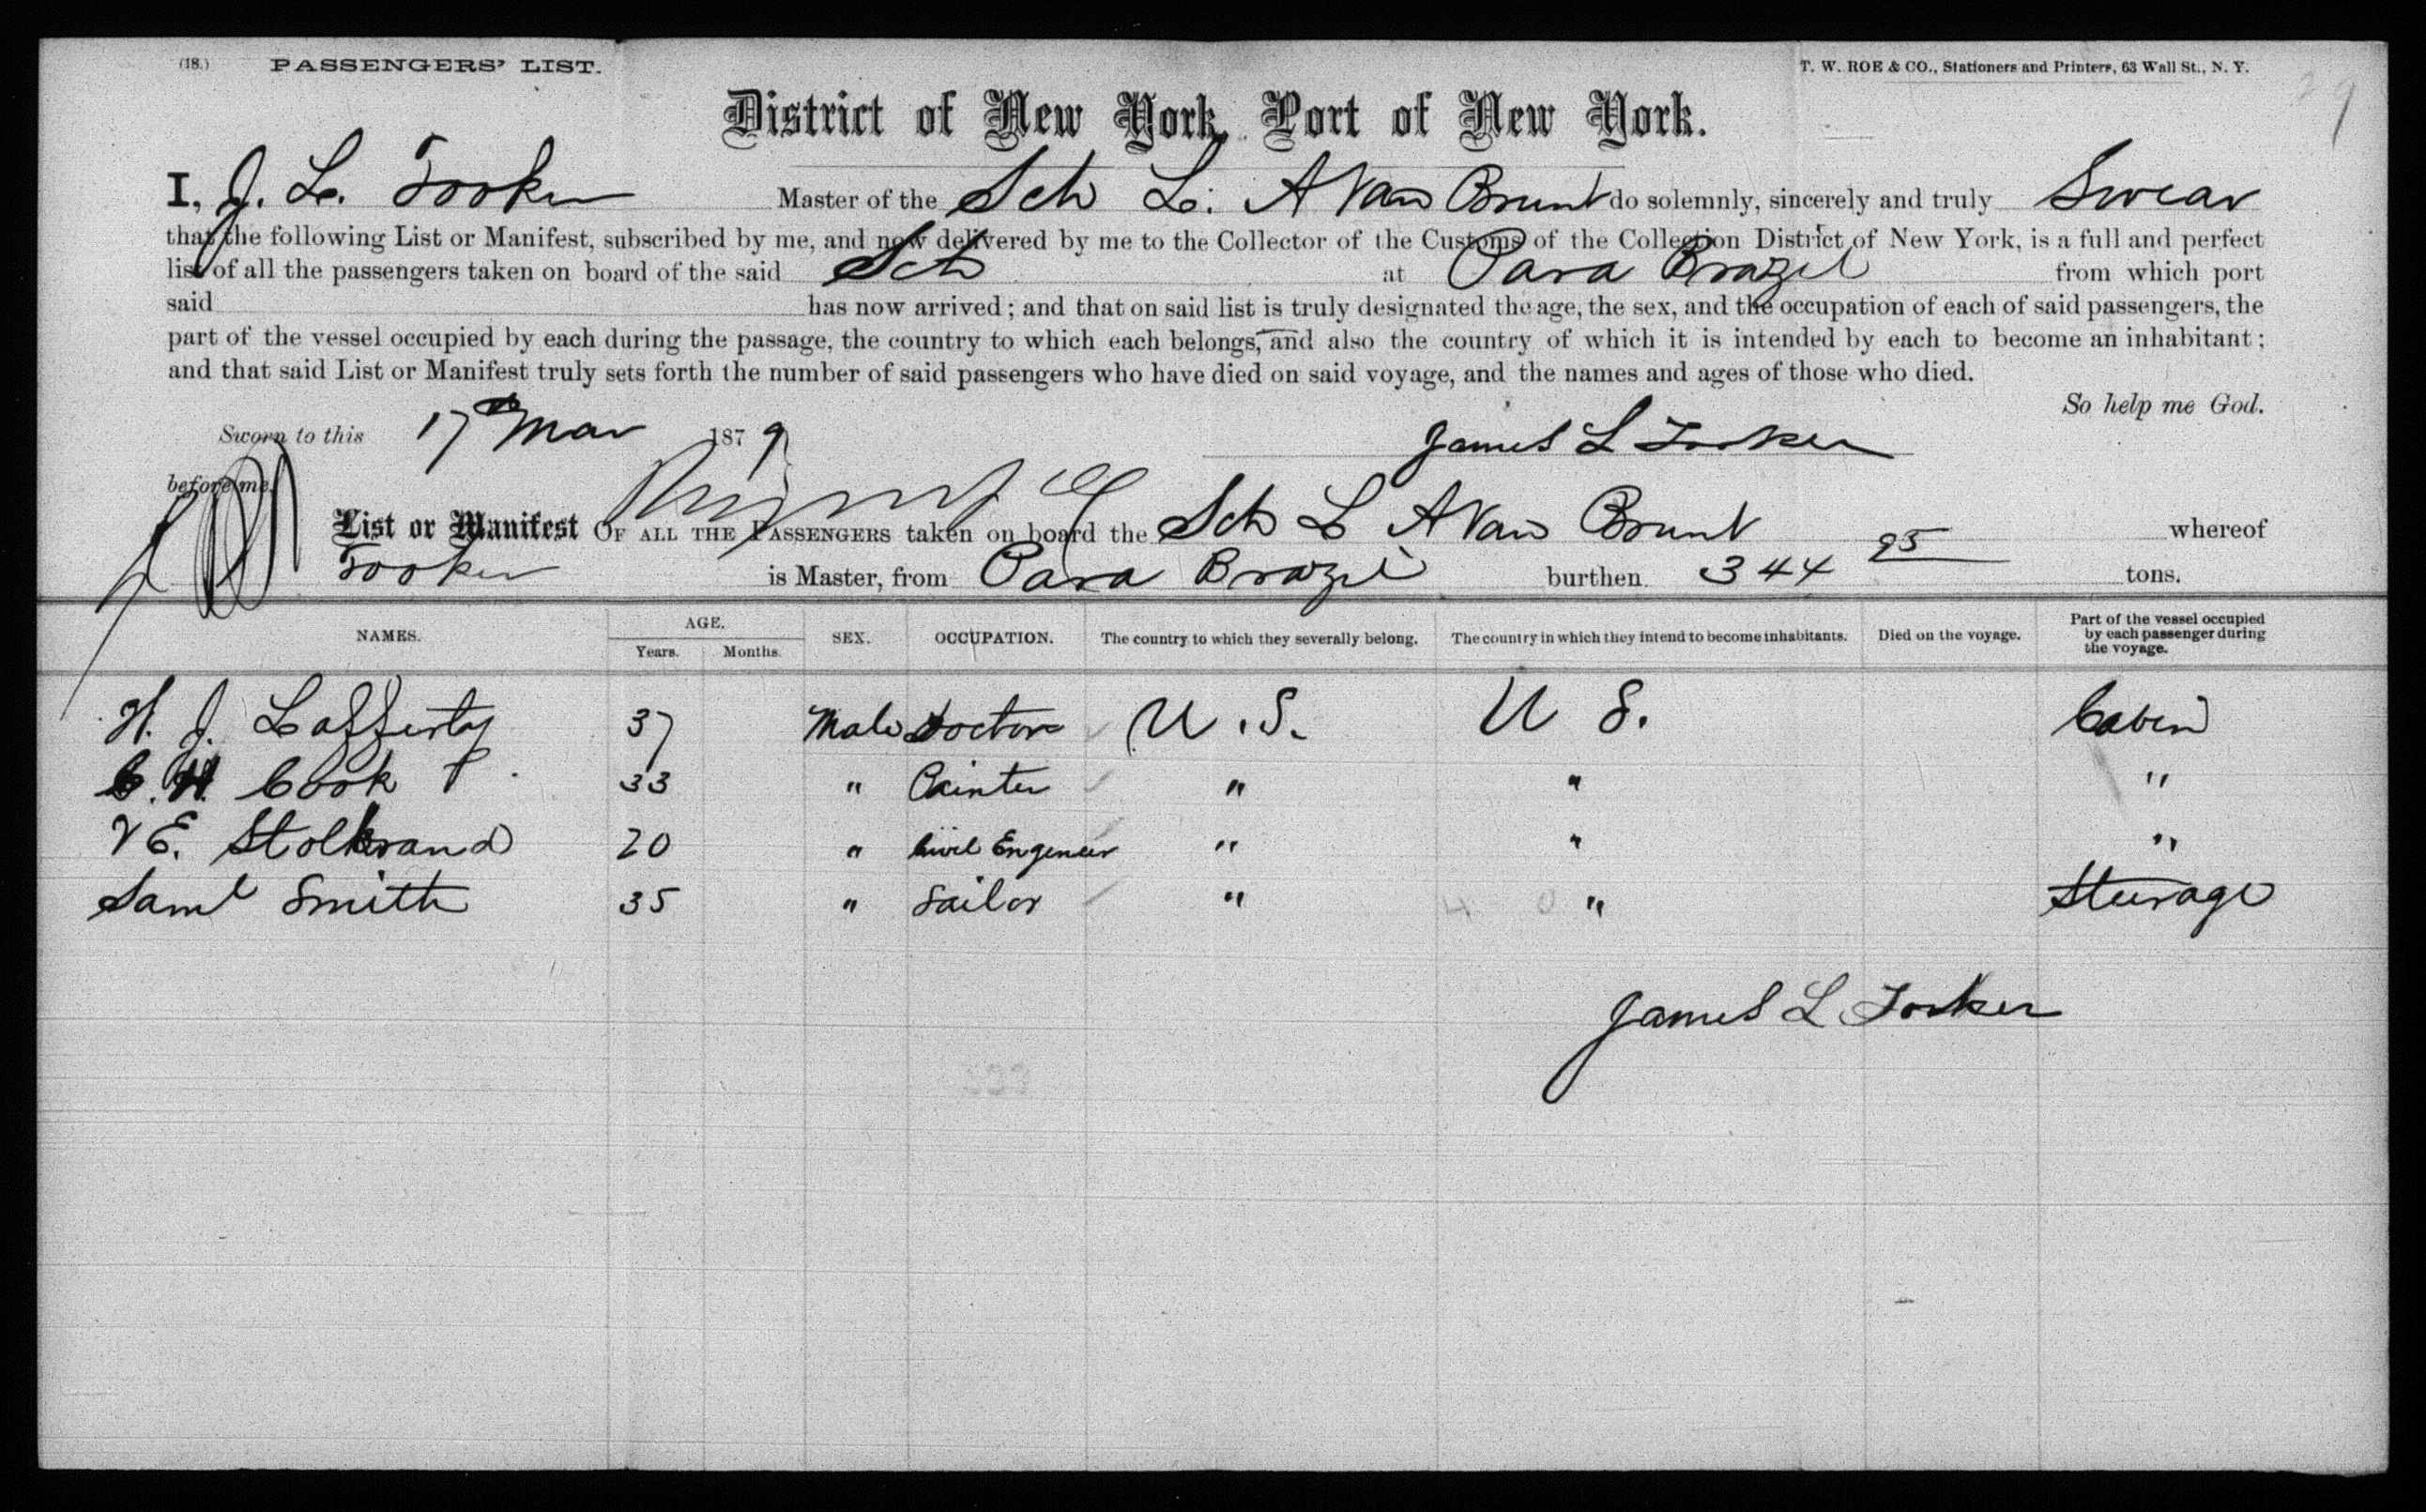 (18.) PASSENGERS' LIST. T. W. ROE & CO., Stationers and Printers, 63 Wall St., N. Y.
District of New York, Port of New York.
I, J. L. Tooker Master of the Sch L. A Van Brunt do solemnly, sincerely and truly Swear
that the following List or Manifest, subscribed by me, and now delivered by me to the Collector of the Customs of the Collection District of New York, is a full and perfect
list of all the passengers taken on board of the said Sch at Para Brazil from which port
said has now arrived; and that on said list is truly designated the age, the sex, and the occupation of each of said passengers, the
part of the vessel occupied by each during the passage, the country to which each belongs, and also the country of which it is intended by each to become an inhabitant;
and that said List or Manifest truly sets forth the number of said passengers who have died on said voyage, and the names and ages of those who died.
So help me God.
Sworn to this 17th Mar 1879 James L Tooker
before me,
List or Manifest OF ALL THE PASSENGERS taken on board the Sch L A Van Brunt whereof
Tooker is Master, from Para Brazil burthen 344 95 tons.
NAMES. AGE. Years. Months. SEX. OCCUPATION. The country to which they severally belong. The country in which they intend to become inhabitants. Died on the voyage. Part of the vessel occupied by each passenger during the voyage.
H. J. Lafferty 37 Male Doctor U.S. U S. Cabin
C. H. Cook 33 " Painter " " "
V E. Stolbrand 20 " Civil Engeneer " " "
Saml Smith 35 " Sailor " " Steerage
James L Tooker